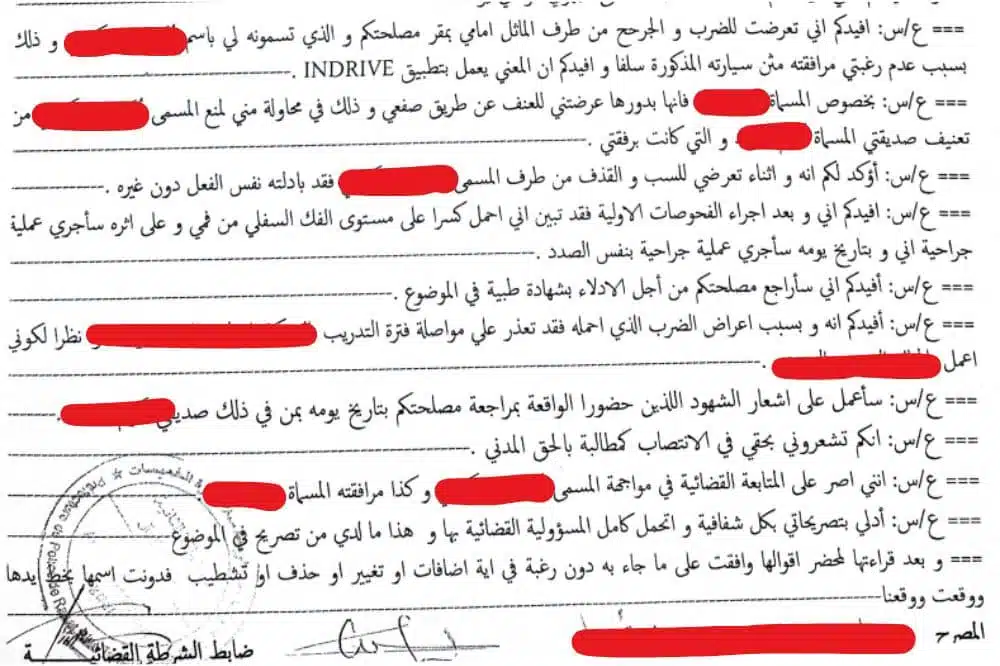 === ع/س: افيدكم اني تعرضت للضرب و الجرحح من طرف الماثل امامي بمقر مصلحتكم و الذي تسمونه لي باسم و ذلك
بسبب عدم رغبتي مرافقته مثن سيارته المذكورة سلفا و افيدكم ان المعني يعمل بتطبيق INDRIVE .
=== ع/س: بخصوص المسماة فانها بدورها عرضتني للعنف عن طريق صفعي و ذلك في محاولة مني لمنع المسمى من
تعنيف صديقتي المسماة و التي كانت برفقتي .
=== ع/س: أؤكد لكم انه و اثناء تعرضي للسب و القذف من طرف المسمى فقد بادلته نفس الفعل دون غيره .
=== ع/س: افيدكم اني و بعد اجراء الفحوصات الاولية فقد تبين اني احمل كسرا على مستوى الفك السفلي من فمي و على اثره سأجري عملية
جراحية اني و بتاريخ يومه سأجري عملية جراحية بنفس الصدد .
=== ع/س: أفيدكم اني سأراجع مصلحتكم من أجل الادلاء بشهادة طبية في الموضوع .
=== ع/س: أفيدكم انه و بسبب اعراض الضرب الذي احمله فقد تعذر علي مواصلة فترة التدريب و نظرا لكوني
اعمل .
=== ع/س: سأعمل على اشعار الشهود اللذين حضورا الواقعة بمراجعة مصلحتكم بتاريخ يومه بمن في ذلك .
=== ع/س: انكم تشعروني بحقي في الانتصاب كمطالبة بالحق المدني .
=== ع/س: انني اصر على المتابعة القضائية في مواجهة المسمى و كذا مرافقته المسماة .
=== ع/س: أدلي بتصريحاتي بكل شفافية و اتحمل كامل المسؤولية القضائية بها و هذا ما لدي من تصريح في الموضوع
=== و بعد قراءتها لمحضر اقوالها وافقت على ما جاء به دون رغبة في اية اضافات او تغيير او حذف او تشطيب فدونت اسمها بخط ايدها
ووقعت ووقعنا
المصرح ضابط الشرطة القضائية